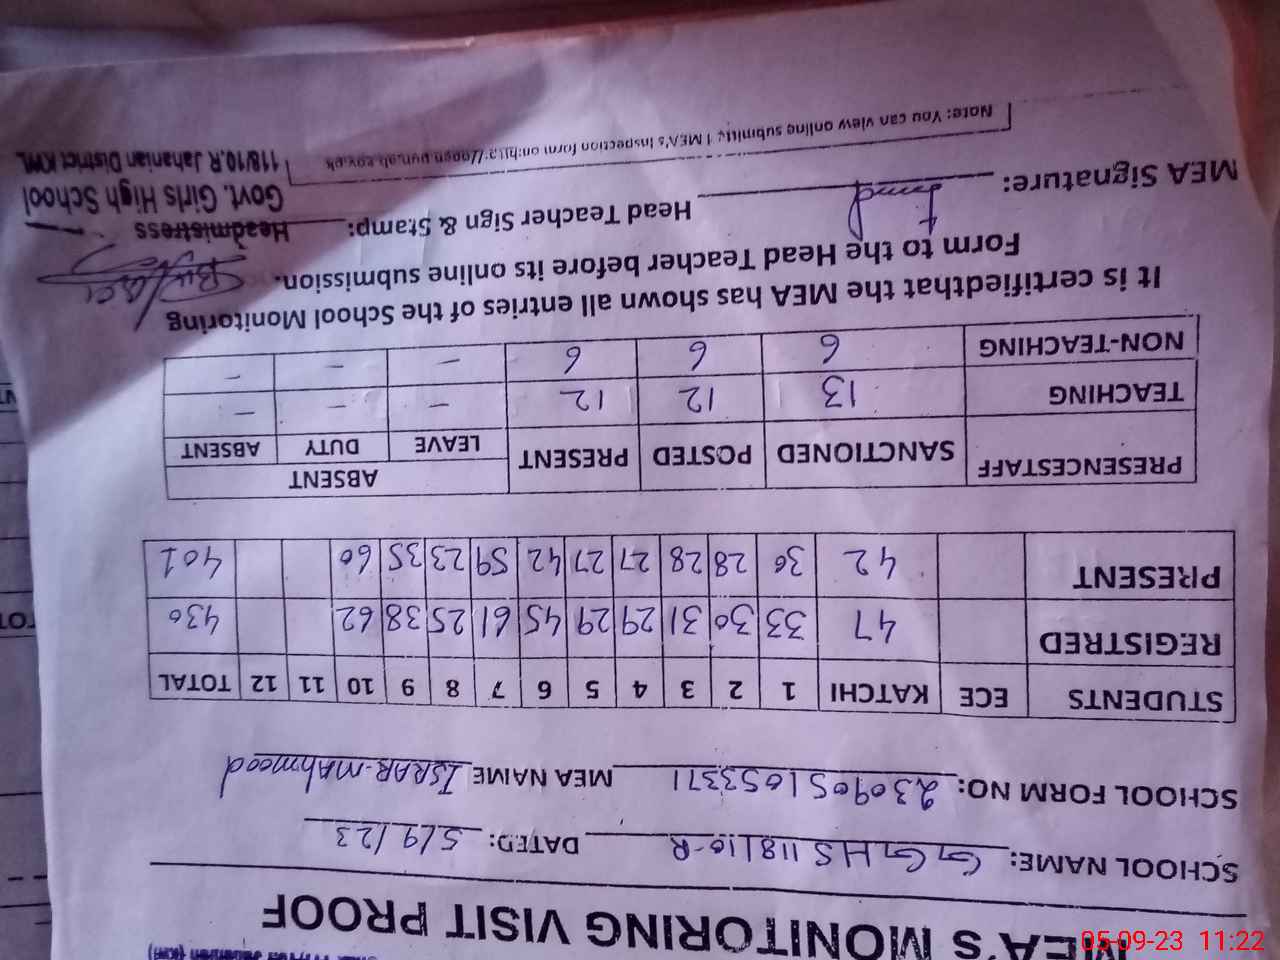 MEA's MONITORING VISIT PROOF
SCHOOL NAME: GGHS 118/10-R DATED: 5/9/23
SCHOOL FORM NO: 230905105337 1 MEA NAME ISRAR-MAhmood
STUDENTS ECE KATCHI 1 2 3 4 5 6 7 8 9 10 11 12 TOTAL
REGISTRED 47 33 30 31 29 29 45 61 25 38 62 430
PRESENT 42 30 28 28 27 27 42 59 23 35 60 401
PRESENCESTAFF SANCTIONED POSTED PRESENT ABSENT
LEAVE DUTY ABSENT
TEACHING 13 12 12 - - -
NON-TEACHING 6 6 6 - - -
It is certifiedthat the MEA has shown all entries of the School Monitoring
Form to the Head Teacher before its online submission.
MEA Signature: Head Teacher Sign & Stamp:
Headmistress
Govt. Girls High School
118/10.R Jahanian District KWL
Note: You can view online submitted MEA's Inspection form on:
05-09-23 11:22